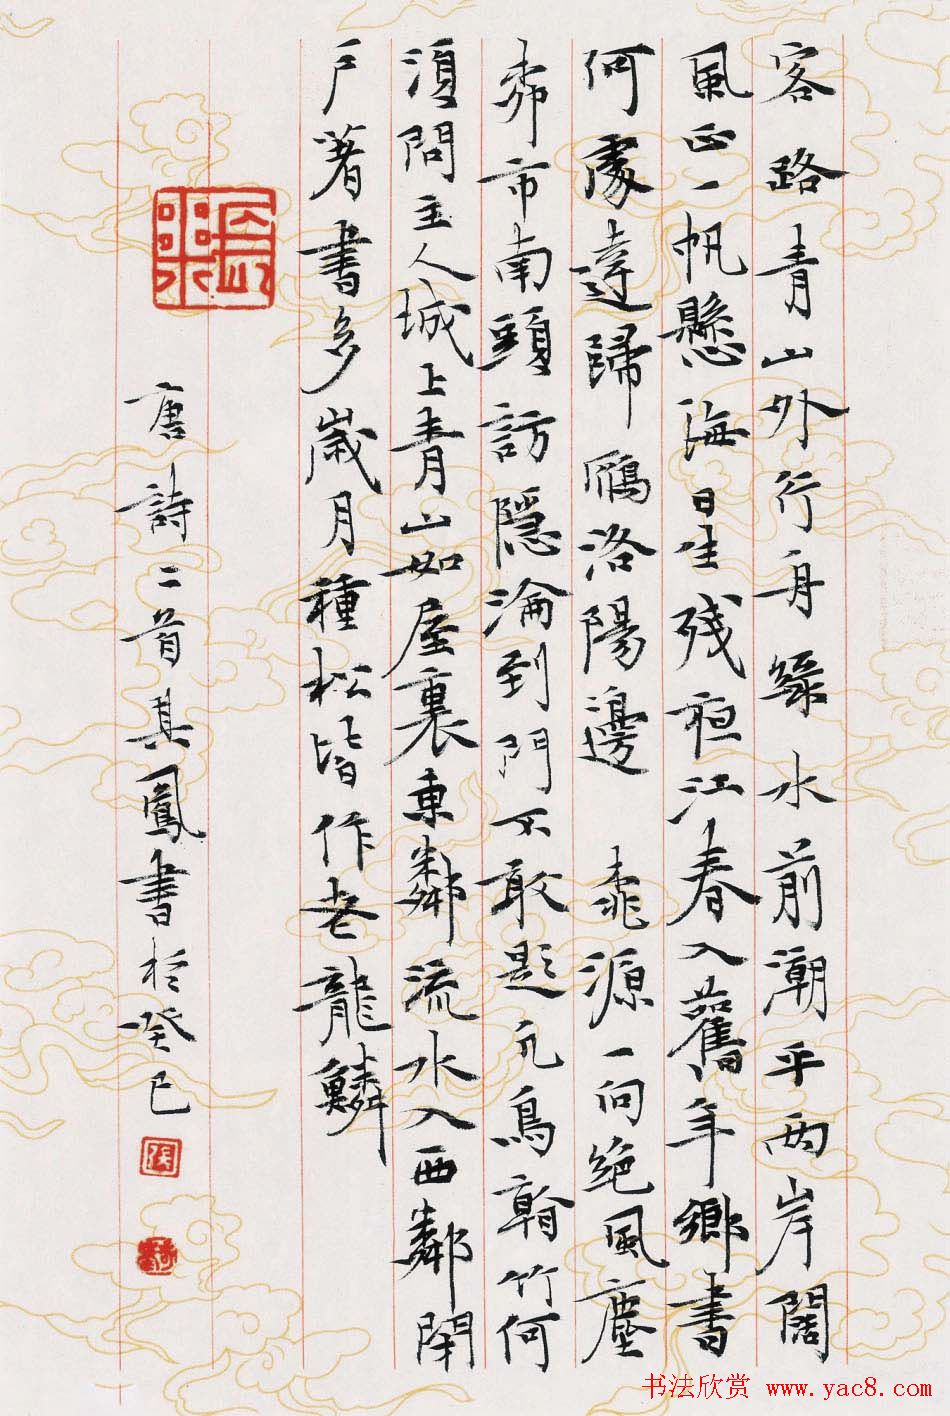 客路青山外行舟綠水前潮平兩岸闊
風正一帆懸海日生殘夜江春入舊年鄉書
何處達歸鴈洛陽邊 桃源一向絕風塵
柳市南頭訪隱淪到門不敢題凡鳥看竹何
須問主人城上青山如屋裏東鄰流水入西鄰閉
戶著書多歲月種松皆作老龍鱗
長樂
唐詩二首其鳳書於癸巳
張
书法欣赏 www.yac8.com